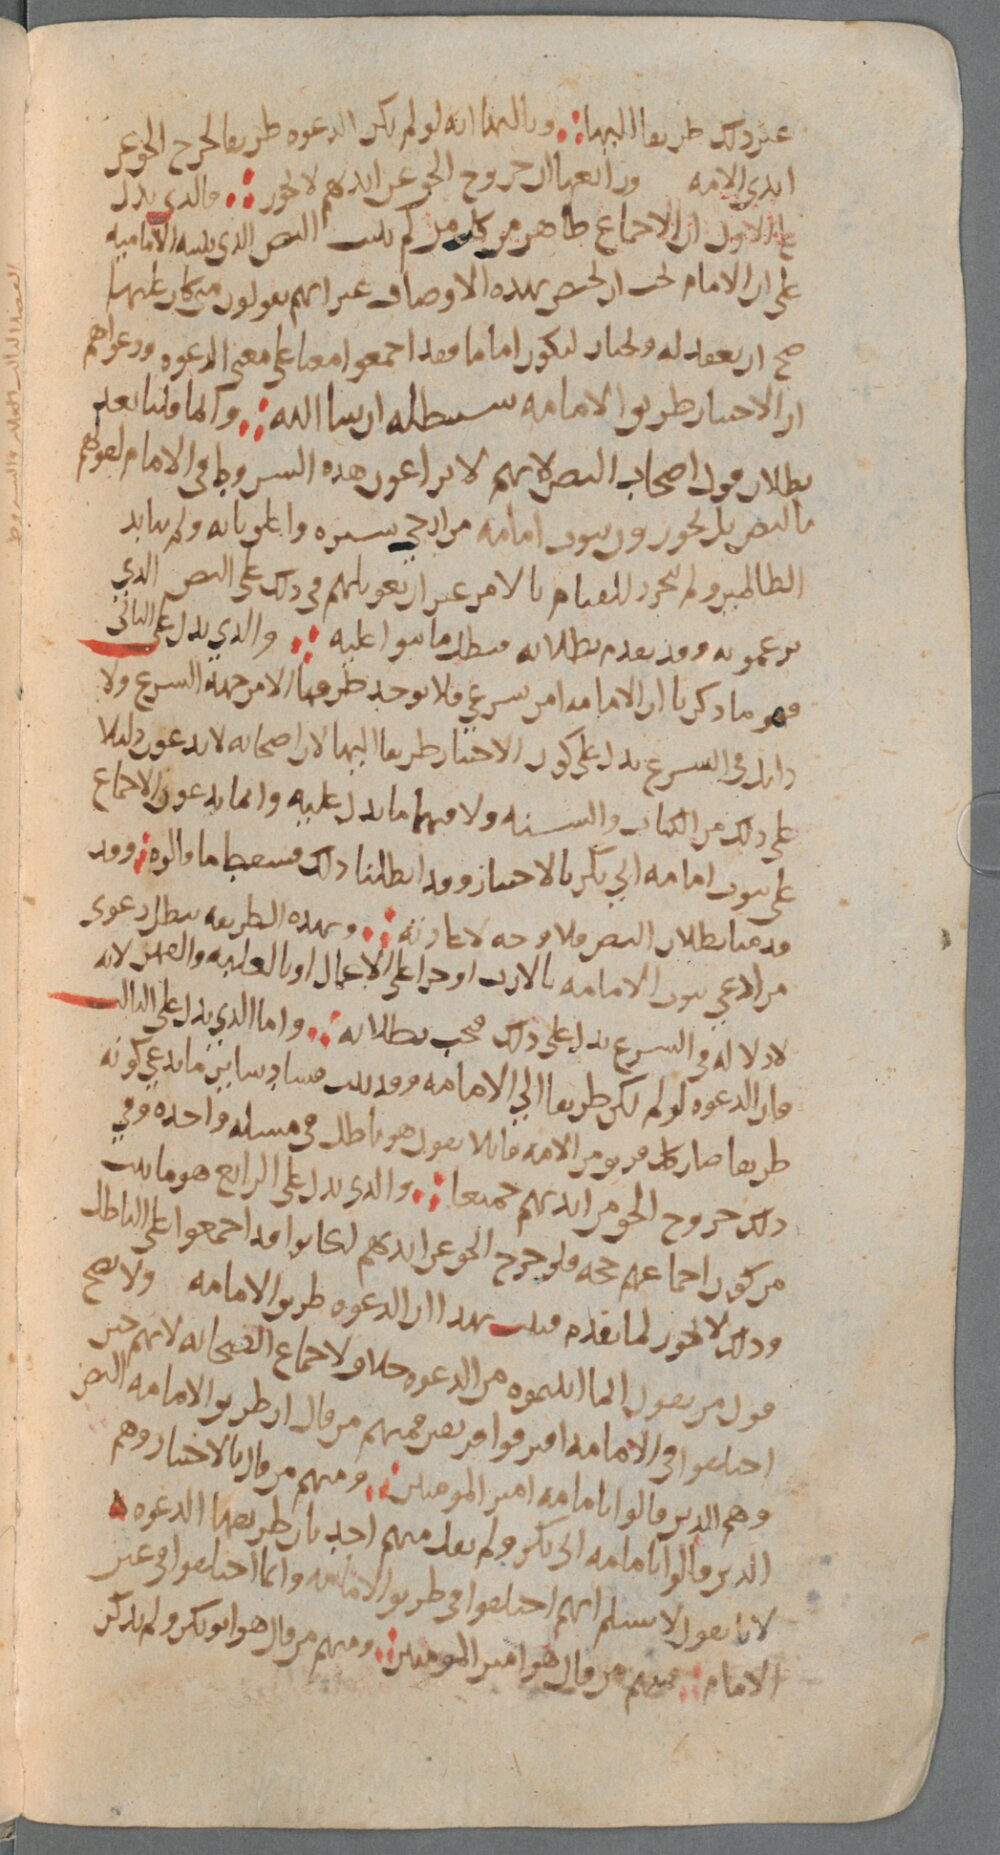 غير ذلك طريقا اليها وثالثها انه لو لم يكن الدعوه طريقا لخرج الحق عن
ايدي الامه ورابعها ان خروج الحق عن ايديهم لا يجوز فالذي يدل
على الاول ان الاجماع ظاهر من كل من لم يثبت النص الذي يثبته الاماميه
على ان الامام يجب ان يختص بهذه الاوصاف غير انهم يقولون من كان عليها
صح ان يعقد له ويختار ليكون اماما فقد اجمعوا معنا على معنى الدعوه ودعواهم
ان الاختيار طريق الامامه سنبطله ان شا الله وانما قلنا بعد
بطلان قول اصحاب النص لانهم لا يراعون هذه الشروط في الامام لقولهم
بالنص بل يجوزون ثبوت امامه من ارخى ستره واغلق بابه ولم ينابذ
الظالمين ولم يتجرد للقيام بالامر غير ان تعويلهم في ذلك على النص الذي
يزعمونه وقد تقدم بطلانه فبطل ما بنوا عليه والذي يدل على الثاني
فهو ما ذكرنا ان الامامه امر شرعي فلا يوخذ طريقها الا من جهة الشرع ولا
دليل في الشرع يدل على كون الاختيار طريقا اليها لان اصحابه لا يدعون دليلا
على ذلك من الكتاب والسنه ولا فيهما ما يدل عليه وانما يدعون الاجماع
على ثبوت امامه ابي بكر بالاختيار وقد ابطلنا ذلك فسقط ما قالوه وقد
قدمنا بطلان النص فلا وجه لاعادته وبهذه الطريقه يبطل دعوى
من ادعى ثبوت الامامه بالارث او جزا على الاعمال او بالغلبه والقهر لانه
لا دلاله في الشرع يدل على ذلك فيجب بطلانه واما الذي يدل على الثالث
فان الدعوه لو لم تكن طريقا الى الامامه وقد ثبت فساد ساير ما يدعى كونه
طريقا صار كل فريق من الامه قايلا بقول هو باطل في مسئله واحده وفي
ذلك خروج الحق من ايديهم جميعا والذي يدل على الرابع هو ما ثبت
من كون اجماعهم حجه فلو خرج الحق عن ايديهم لكانوا قد اجمعوا على الباطل
وذلك لا يجوز لما تقدم فثبت بهذا ان الدعوه طريق الامامه ولا يصح
قول من يقول انما اثبتموه من الدعوه خلاف لاجماع الصحابه لانهم حين
اختلفوا في الامامه افترقوا فرقتين فمنهم من قال ان طريق الامامه النص
وهم الذين قالوا بامامه امير المومنين ومنهم من قال بالاختيار وهم
الذين قالوا بامامه ابي بكر ولم يقل منهم احد بان طريقها الدعوه
لانا نقول لا نسلم انهم اختلفوا في طريق الامامه وانما اختلفوا في عين
الامام فمنهم من قال هو امير المومنين ومنهم من قال هو ابو بكر ولم يذكر